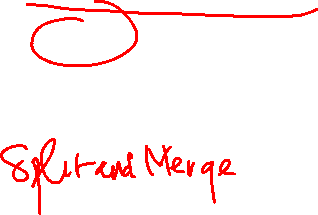 Split and Merge